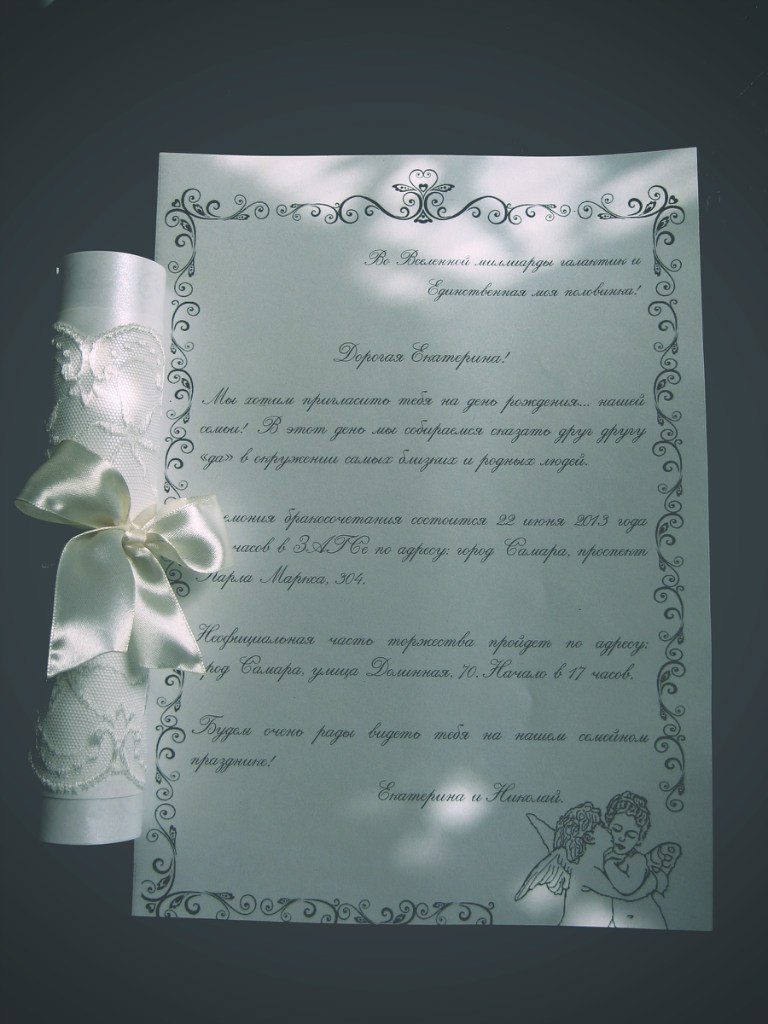 Во Вселенной миллиарды галактик и
Единственная моя половинка!
Дорогая Екатерина!
Мы хотим пригласить тебя на день рождения... нашей
семьи! В этот день мы собираемся сказать друг другу
«да» в окружении самых близких и родных людей.
бракосочетания состоится 22 июня 2013 года
часов в ЗАГСе по адресу: город Самара, проспект
Карла Маркса, 304.
Неофициальная часть торжества пройдет по адресу:
город Самара, улица Долинная, 70. Начало в 17 часов.
Будем очень рады видеть тебя на нашем семейном
празднике!
Екатерина и Николай.